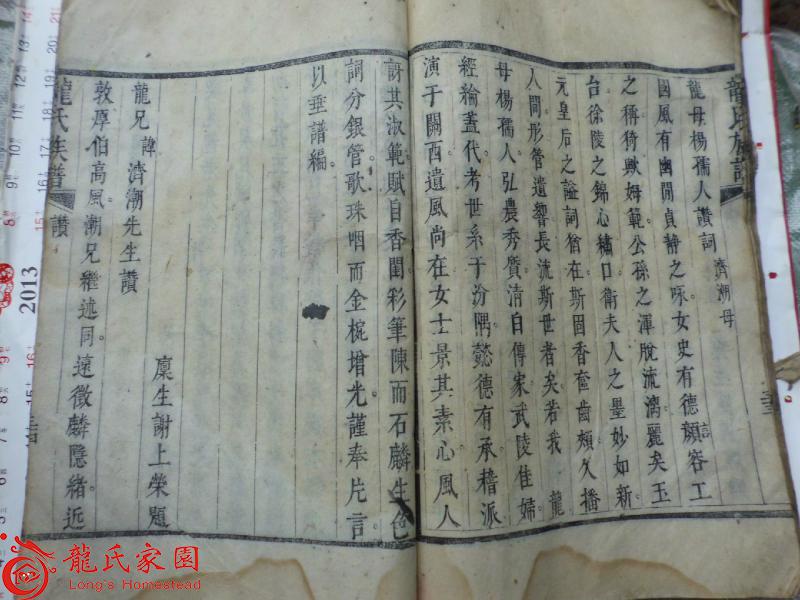 龍氏族譜
龍母楊孺人讚詞 濟潮母
國風有幽閒貞靜之咏女史有德顏容工
之稱猗歟姆範公孫之渾脫流漓麗矣玉
台徐陵之錦心繡口衛夫人之墨妙如新
元皇后之謚詞猶在斯固香奩齒頰久播
人間形管遺響長流斯世者矣若我 龍
母楊孺人弘農秀質清白傳家武陵佳婦
經綸蓋代考世系于汾隅懿德有承稽派
演于關西遺風尚在女士景其素心風人
訝其淑範賦自香閨彩筆陳而石麟生色
詞分銀管歌珠咽而金梡增光謹奉片言
以垂譜編
廩生謝上榮題
龍兄諱濟潮先生讚
敦厚伯高風潮兄繼述同遠徵麟隱緒近
龍氏族譜 讚
2013
龍氏家園
Long's Homestead